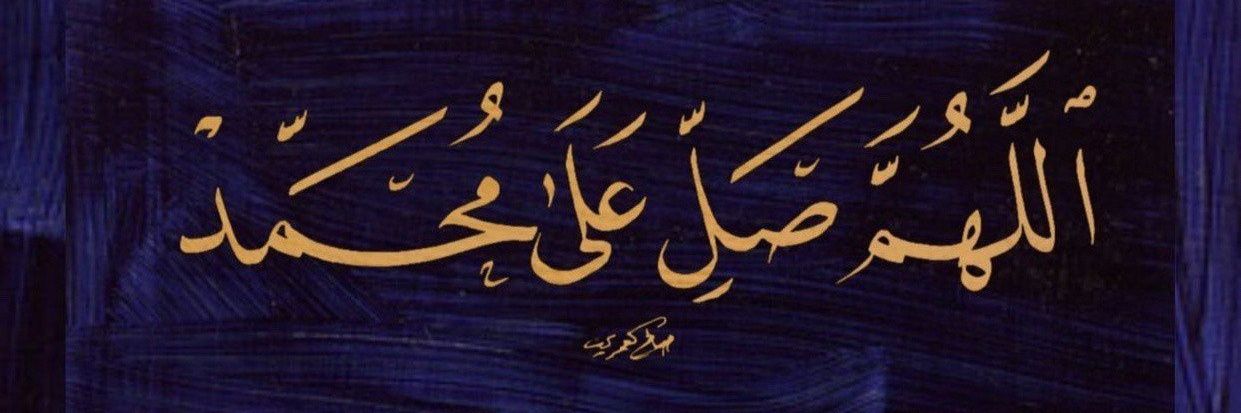 اَللّٰهُمَّ صَلِّ عَلَىٰ مُحَمَّدْ